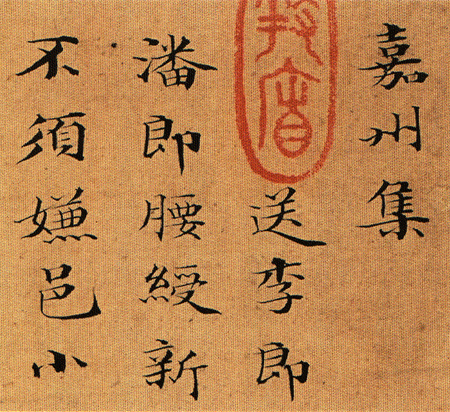 嘉州集
送李郎
潘郎腰綬新
不須嫌邑小